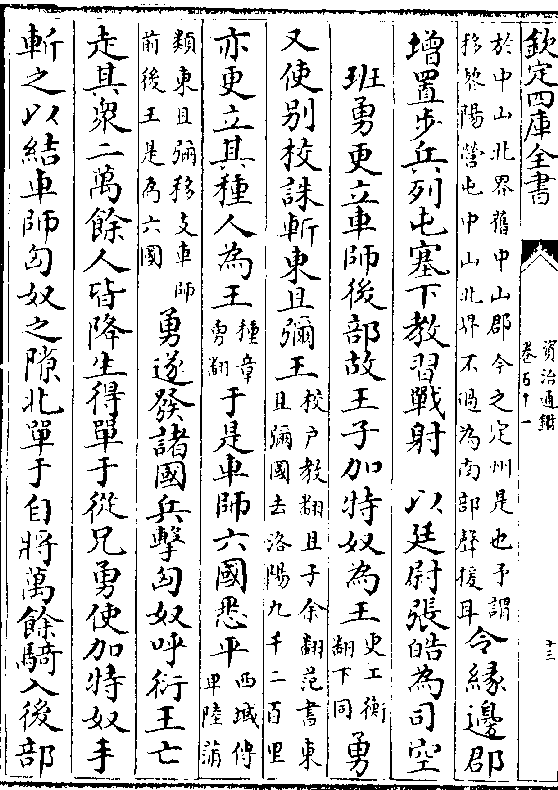 欽定四庫全書
資治通鑑
卷五十一
十三
於中山北界舊中山郡今之定州是也予謂
移黎陽營屯中山北界不過為南部聲援耳
令緣邊郡
增置步兵列屯塞下教習戰射 以廷尉張皓為司空
班勇更立車師後部故王子加特奴為王
更工衡
翻下同
勇
又使别校誅斬東且彌王
校户教翻且子余翻范書東
且彌國去洛陽九千二百里
亦更立其種人為王
種章
勇翻
于是車師六國悉平
西域傳
卑陸蒲
類東且彌移支車師
前後王是為六國
勇遂發諸國兵擊匈奴呼衍王亡
走其衆二萬餘人皆降生得單于從兄勇使加特奴手
斬之以結車師匈奴之隙北單于自將萬餘騎入後部